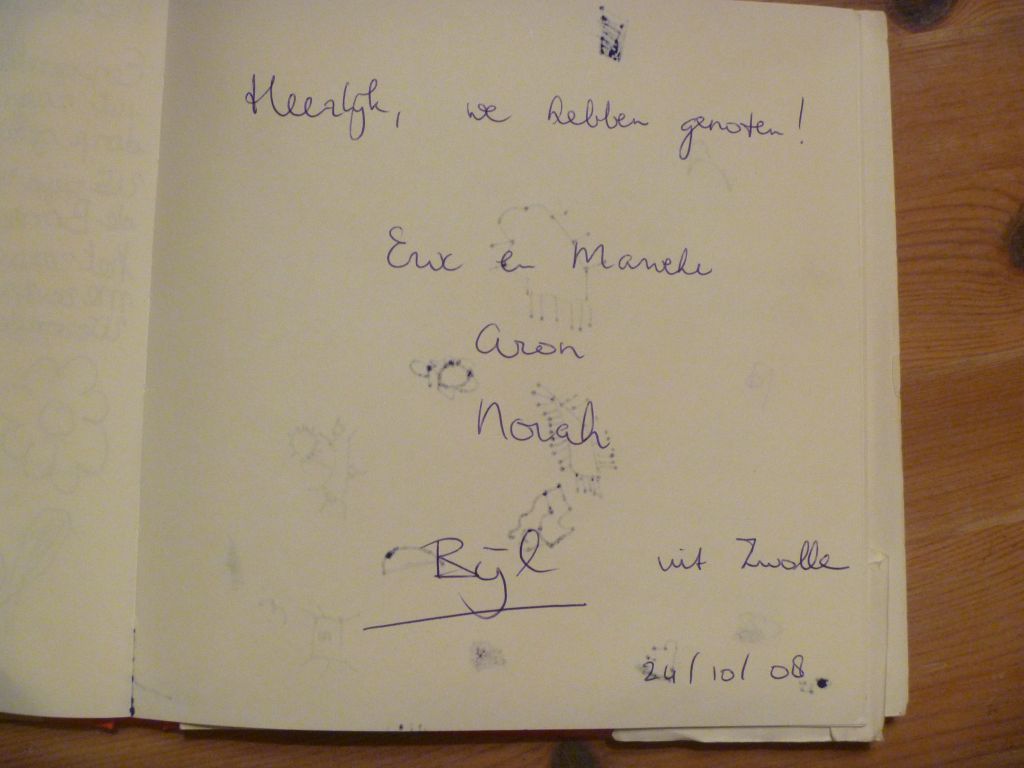 Heerlijk, we hebben genoten!
Eric en Marieke
Aron
Norah
Bijl uit Zwolle
24/10/08.